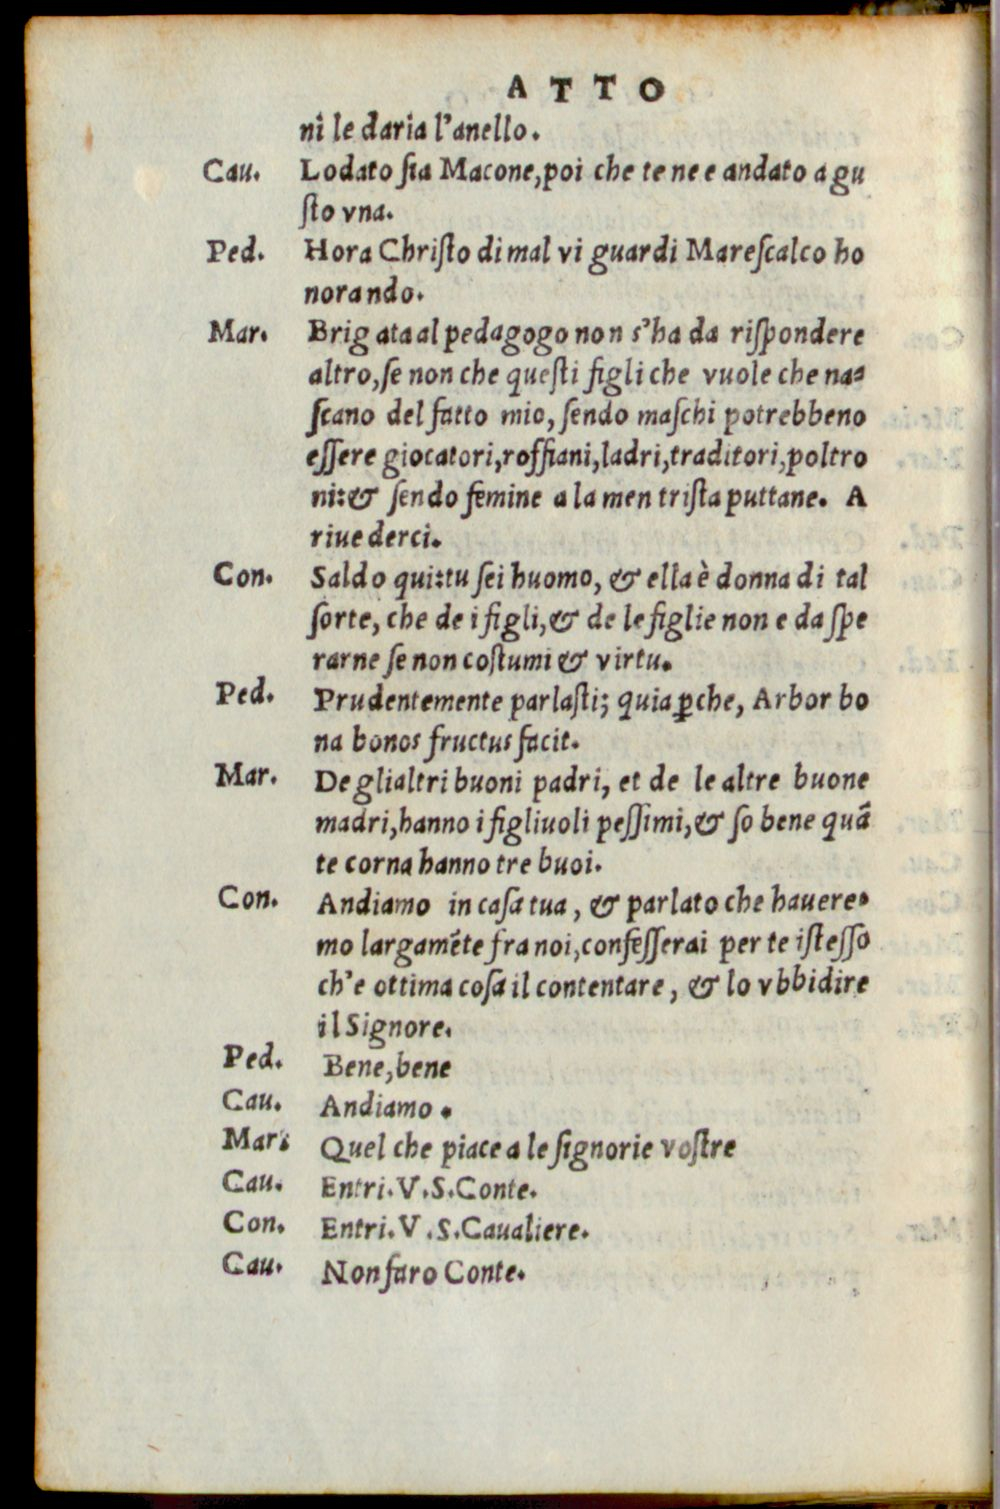 ATTO
ni le daria l'anello.
Cau. Lodato ſia Macone, poi che te ne e andato a gu
ſto vna.
Ped. Hora Chriſto di mal vi guardi Mareſcalco ho
norando.
Mar. Brigata al pedagogo non s'ha da riſpondere
altro, ſe non che queſti figli che vuole che na⸗
ſcano del fatto mio, ſendo maſchi potrebbeno
eſſere giocatori, roffiani, ladri, traditori, poltro
ni: & ſendo femine a la men triſta puttane. A
riuederci.
Con. Saldo qui: tu ſei huomo, & ella è donna di tal
ſorte, che de i figli, & de le figlie non e da ſpe
rarne ſe non coſtumi & virtu.
Ped. Prudentemente parlaſti; quia ꝑche, Arbor bo
na bonos fructus facit.
Mar. De gli altri buoni padri, et de le altre buone
madri, hanno i figliuoli peſſimi, & ſo bene quã
te corna hanno tre buoi.
Con. Andiamo in caſa tua, & parlato che hauere⸗
mo largamẽte fra noi, confeſſerai per te iſteſſo
ch'e ottima coſa il contentare, & lo vbbidire
il Signore.
Ped. Bene, bene
Cau. Andiamo.
Mar. Quel che piace a le ſignorie voſtre
Cau. Entri. V. S. Conte.
Con. Entri. V. S. Caualiere.
Cau. Non faro Conte.